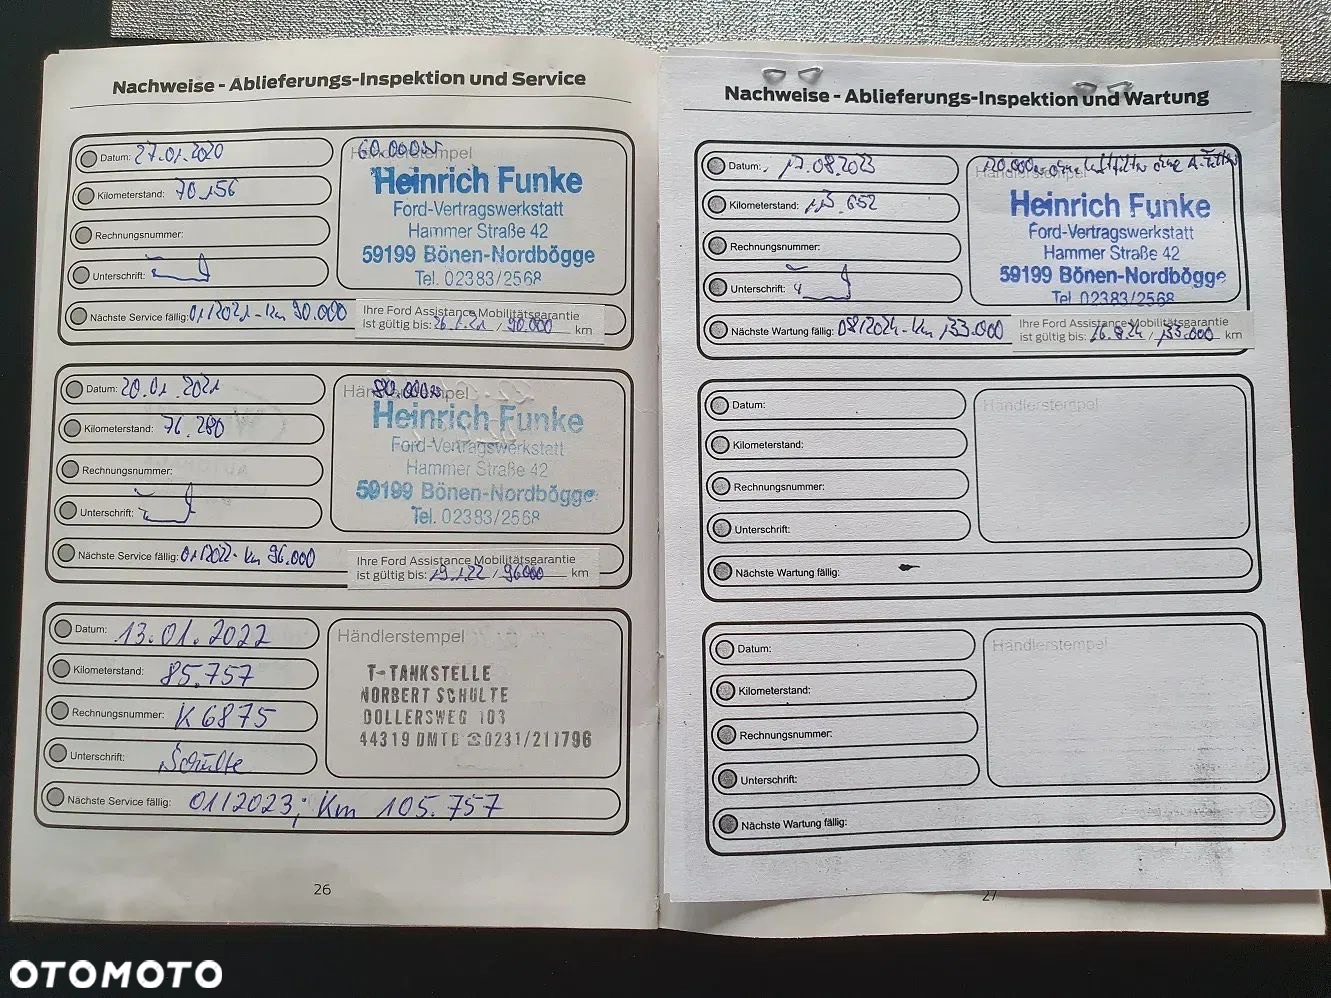 Nachweise - Ablieferungs-Inspektion und Service
Datum: 27.01.2020
Kilometerstand: 70.156
Rechnungsnummer:
Unterschrift:
Nächste Service fällig: 01/2021 - km 90.000
60.000er
Händlerstempel
Heinrich Funke
Ford-Vertragswerkstatt
Hammer Straße 42
59199 Bönen-Nordbögge
Tel. 02383/2568
Ihre Ford Assistance Mobilitätsgarantie
ist gültig bis: 26.1.21 / 90.000 km
Datum: 20.01.2021
Kilometerstand: 76.280
Rechnungsnummer:
Unterschrift:
Nächste Service fällig: 01/2022 - km 96.000
80.000er
Händlerstempel
Heinrich Funke
Ford-Vertragswerkstatt
Hammer Straße 42
59199 Bönen-Nordbögge
Tel. 02383/2568
Ihre Ford Assistance Mobilitätsgarantie
ist gültig bis: 19.1.22 / 96000 km
Datum: 13.01.2022
Kilometerstand: 85.757
Rechnungsnummer: K6875
Unterschrift: Schulte
Nächste Service fällig: 01/2023; Km 105.757
Händlerstempel
T-TANKSTELLE
NORBERT SCHULTE
DOLLERSWEG 103
44319 DMTD ☎0231/211796
26
Nachweise - Ablieferungs-Inspektion und Wartung
Datum: 17.08.2023
Kilometerstand: 113.652
Rechnungsnummer:
Unterschrift:
Nächste Wartung fällig: 08/2024 - km 133.000
120.000er ohne Luftfilter ohne
Händlerstempel
Heinrich Funke
Ford-Vertragswerkstatt
Hammer Straße 42
59199 Bönen-Nordbögge
Tel. 02383/2568
Ihre Ford Assistance Mobilitätsgarantie
ist gültig bis: 16.8.24 / 133.000 km
Datum:
Kilometerstand:
Rechnungsnummer:
Unterschrift:
Nächste Wartung fällig:
Händlerstempel
Datum:
Kilometerstand:
Rechnungsnummer:
Unterschrift:
Nächste Wartung fällig:
Händlerstempel
27
OTOMOTO